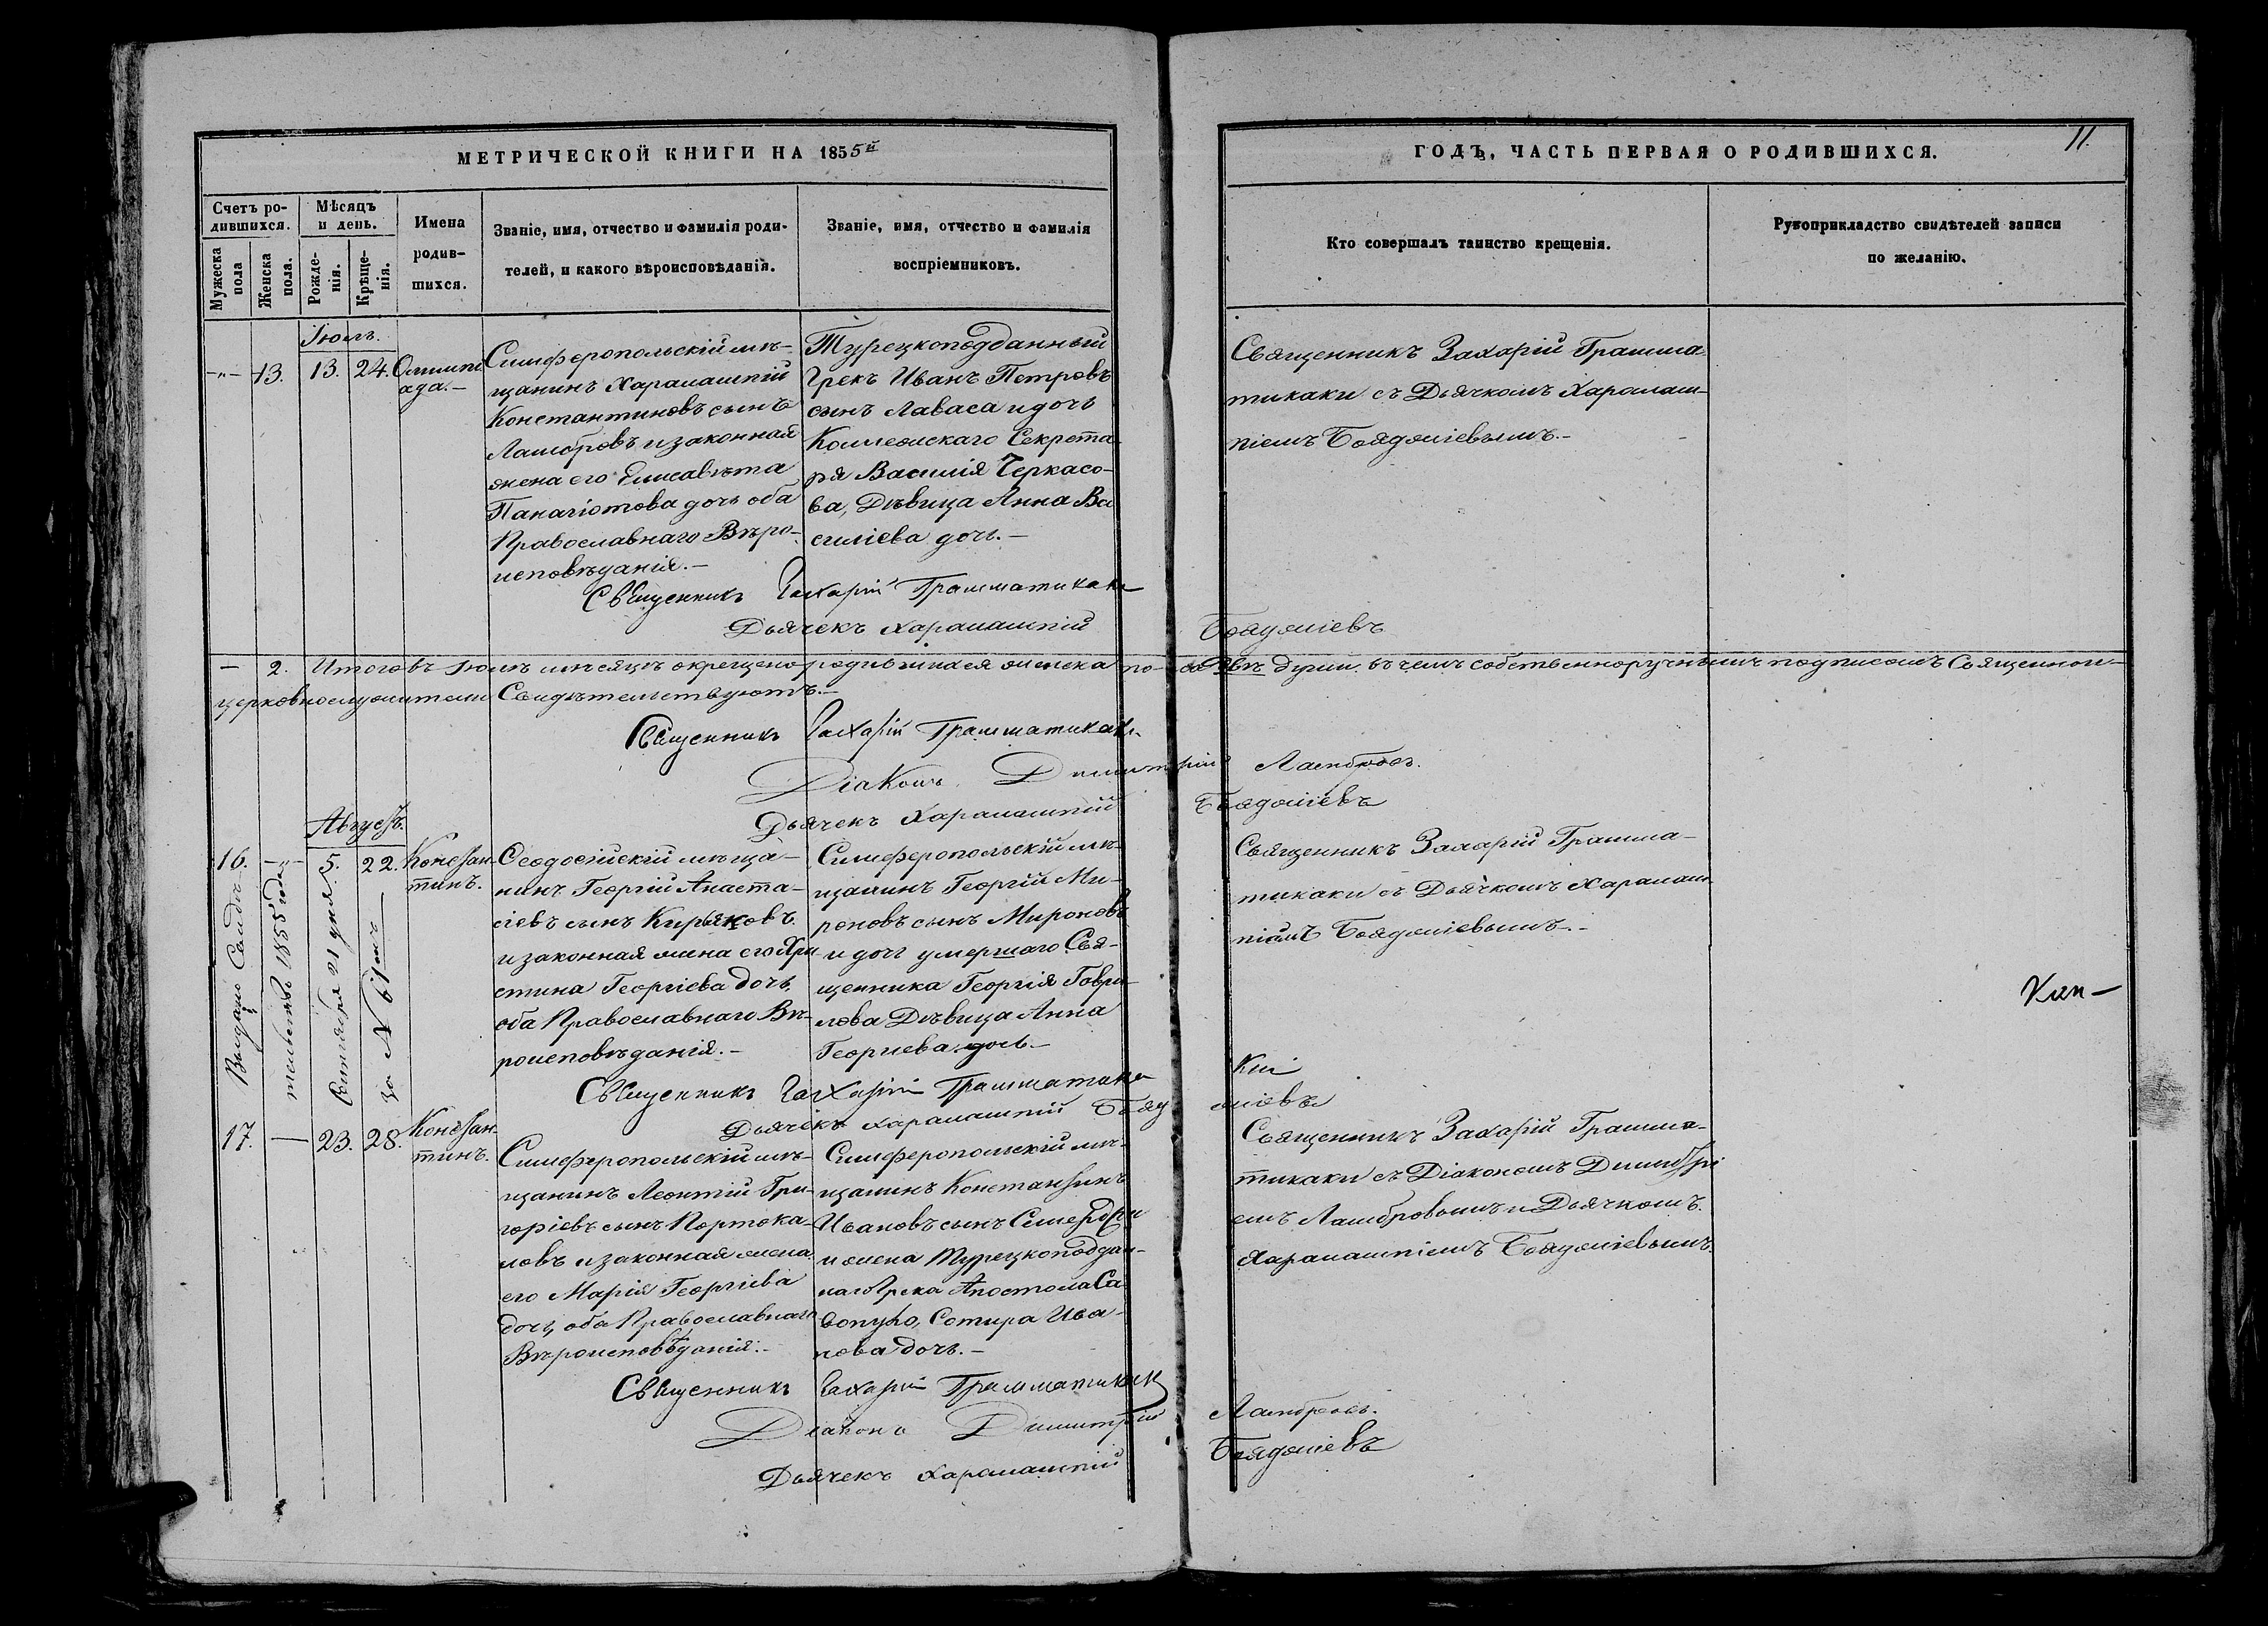 МЕТРИЧЕСКОЙ КНИГИ НА 1855й
ГОДЪ, ЧАСТЬ ПЕРВАЯ О РОДИВШИХСЯ.
11.
Счетъ ро-
дившихся.
Мужеска
пола
Женска
пола.
Мѣсяцъ
и день.
Рожде-
нія.
Крѣще-
нія.
Имена
родив-
шихся.
Званіе, имя, отчество и фамилія роди-
телей, и какого вѣроисповѣданія.
Званіе, имя, отчество и фамилія
воспріемниковъ.
Кто совершалъ таинство крещенія.
Рукоприкладство свидѣтелей записи
по желанію.
Іюль.
-"- 13. 13. 24.
Олимпі
ада.-
Симферопольскій мѣ-
щанинъ Харалампій
Константиновъ сынъ
Ламбровъ и законная
жена его Елисавѣта
Панагіотова дочь оба
Православнаго Вѣро-
исповѣданія.-
Турецкоподданный
Грекъ Иванъ Петровъ
сынъ Лаваса и дочь
Коллежскаго Секрета-
ря Василія Черкасо-
ва, Дѣвица Анна Ва
силіева дочь.-
Священникъ Захарій Грамма-
тикаки съ Дьячкомъ Харалам-
піемъ Бояджіевымъ.-
Священникъ Захарій Грамматикаки
Дьячекъ Харалампій Бояджіевъ
- 2. Итого въ Іюлѣ мѣсяцѣ окрещено родившихся женска пола двѣ души. въ чемъ собственноручнымъ подписомъ Священно и-
церковнослужители Свидѣтельствуютъ.-
Священникъ Захарій Грамматикаки
Діаконъ Димитрій Ламбровъ.
Дьячекъ Харалампій Бояджіевъ
Августъ.
16. -"- 5. 22.
Констан-
тинъ.
Ѳеодосійскій мѣща-
нинъ Георгій Анаста-
сіевъ сынъ Кирьяковъ
и законная жена его Хри
стина Георгіева дочь,
оба Православнаго Вѣ-
роисповѣданія.-
Симферопольскій мѣ-
щанинъ Георгій Ми-
роновъ сынъ Мироновъ
и дочь умершаго Свя-
щенника Георгія Гаври-
лова Дѣвица Анна
Георгіева дочь.-
Священникъ Захарій Грамма-
тикаки съ Дьячкомъ Харалам-
піемъ Бояджіевымъ.-
Выдано Свидѣ
тельство 1855 года
Сентября 21 дня
за № 61мъ
Священникъ Захарій Грамматика
ки
Дьячекъ Харалампій Бояд
жіевъ
17. - 23. 28.
Констан-
тинъ.
Симферопольскій мѣ-
щанинъ Леонтій Гри-
горіевъ сынъ Портока-
ловъ и законная жена
его Марія Георгіева
дочь, оба Православнаго
Вѣроисповѣданія.-
Симферопольскій мѣ-
щанинъ Константинъ
Ивановъ сынъ
и жена Турецкоподдан-
наго Грека Апостола
Сотира Ива-
нова дочь.-
Священникъ Захарій Грамма-
тикаки съ Діакономъ Димитрі
емъ Ламбровымъ и Дьячкомъ
Харалампіемъ Бояджіевымъ.
Священникъ Захарій Грамматикаки
Діаконъ Димитрій Ламбровъ.
Дьячекъ Харалампій Бояджіевъ